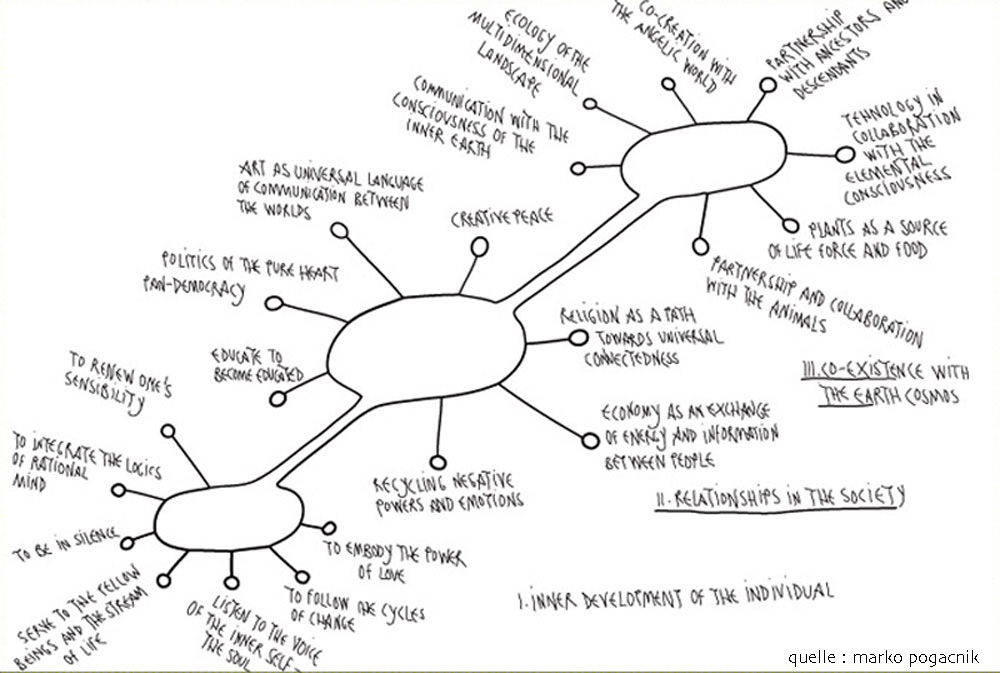 ECOLOGY OF THE
MULTIDIMENSIONAL
LANDSCAPE
CO-CREATION WITH
THE ANGELIC WORLD
PARTNERSHIP
WITH ANCESTORS AND
DESCENDANTS
COMMUNICATION WITH THE
CONSCIOUSNESS OF THE
INNER EARTH
TEHNOLOGY IN
COLLABORATION
WITH THE
ELEMENTAL
CONSCIOUSNESS
PLANTS AS A SOURCE
OF LIFE FORCE AND FOOD
PARTNERSHIP AND COLLABORATION
WITH THE ANIMALS
III. CO-EXISTENCE WITH
THE EARTH COSMOS
ART AS UNIVERSAL LANGUAGE
OF COMMUNICATION BETWEEN
THE WORLDS
CREATIVE PEACE
POLITICS OF THE PURE HEART
PAN-DEMOCRACY
EDUCATE TO
BECOME EDUCATED
RELIGION AS A PATH
TOWARDS UNIVERSAL
CONECTEDNESS
ECONOMY AS AN EXCHANGE
OF ENERGY AND INFORMATION
BETWEEN PEOPLE
RECYCLING NEGATIVE
POWERS AND EMOTIONS
II. RELATIONSHIPS IN THE SOCIETY
TO RENEW ONE'S
SENSIBILITY
TO INTEGRATE THE LOGICS
OF RATIONAL
MIND
TO BE IN SILENCE
SERVE TO THE FELLOW
BEINGS AND THE STREAM
OF LIFE
LISTEN TO THE VOICE
OF THE INNER SELF –
THE SOUL
TO FOLLOW THE CYCLES
OF CHANGE
TO EMBODY THE POWER
OF LOVE
I. INNER DEVELOPMENT OF THE INDIVIDUAL
quelle : marko pogacnik